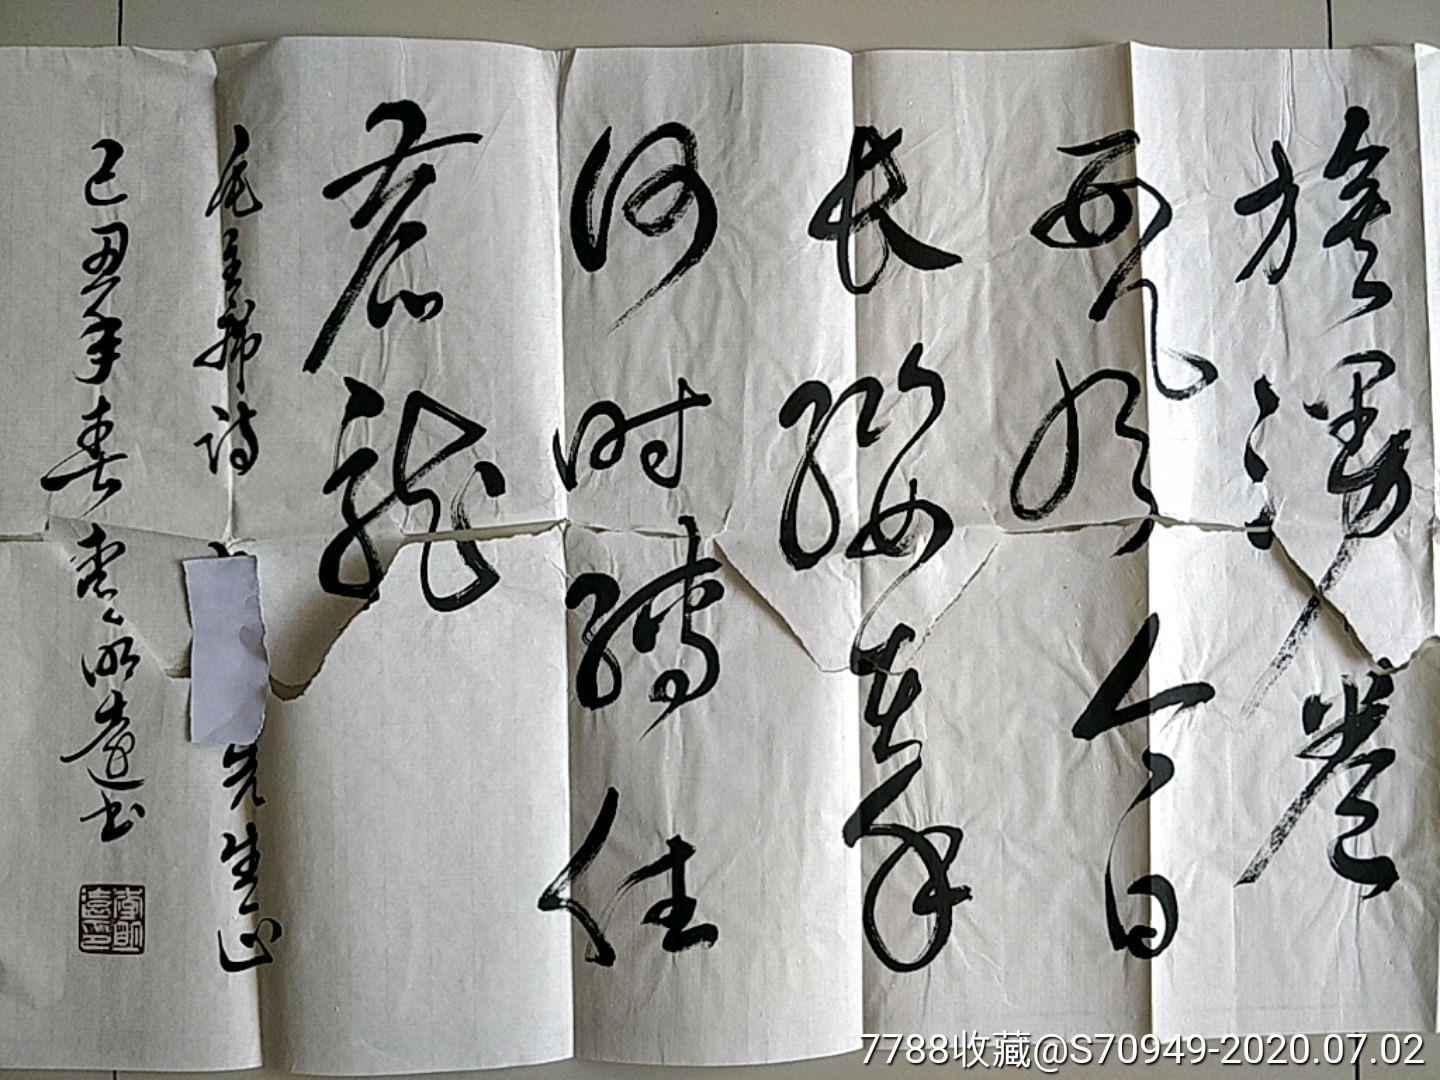 旗漫卷
西风今日
长缨在手
何时缚住
苍龙
毛主席诗
先生正
己丑年春李明远书
李明遠印
7788收藏@S70949-2020.07.02